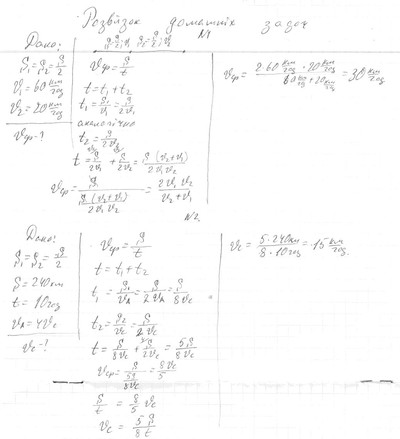 Розв'язок домашніх задач
№1
Дано:
S₁=S₂=S/2
v₁=60 км/год
v₂=20 км/год
vср-?
vср=S/t
t=t₁+t₂
t₁=S₁/v₁=S/2v₁
аналогічно
t₂=S/2v₂
t=S/2v₁+S/2v₂=S(v₂+v₁)/2v₁v₂
vср=S/(S(v₂+v₁)/2v₁v₂)=2v₁v₂/v₂+v₁
vср=2·60 км/год·20 км/год/60 км/год+20 км/год=30 км/год
№2
Дано:
S₁=S₂=S/2
S=240км
t=10год
vл=4vс
vс-?
vср=S/t
t=t₁+t₂
t₁=S₁/vл=S/2vл=S/8vс
t₂=S₂/vс=S/2vс
t=S/8vс+S/2vс=5S/8vс
vср=S/(5S/8vс)=8vс/5
S/t=8/5 vс
vс=5S/8t
vс=5·240км/8·10год=15 км/год